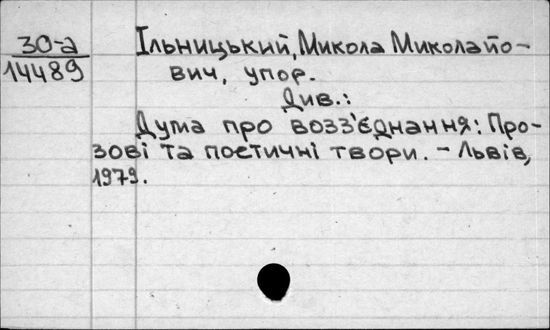 30-а
14489
Ільницький, Микола Миколайо-
вич, упор.
Див.:
Дума про возз'єднання: Про-
зові та поетичні твори. - Львів,
1979.